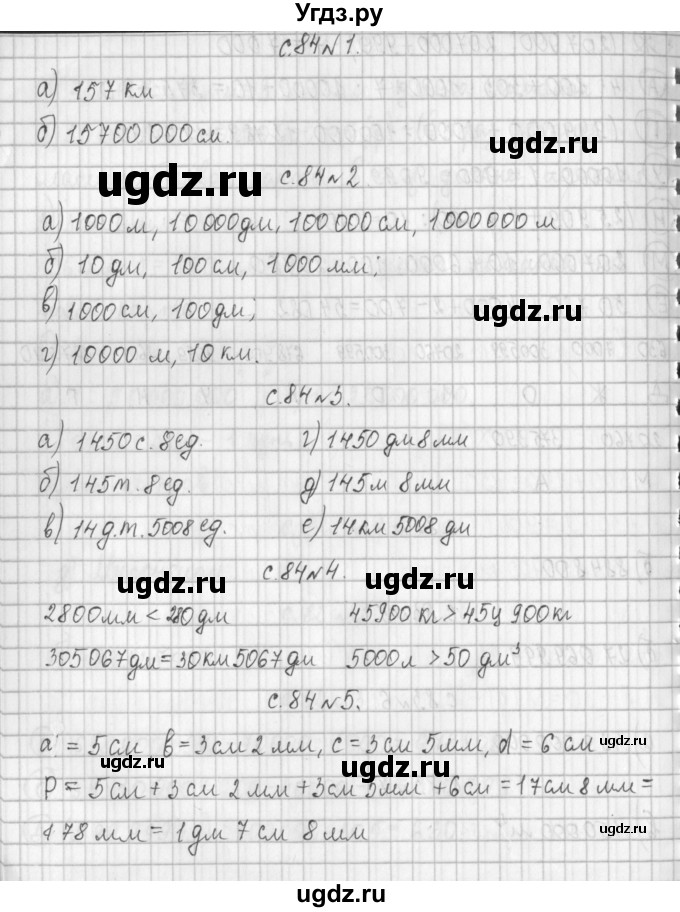 Угдз.ру
с.84 № 1.
а) 157 км
б) 15700 000 см.
ugdz.ru
с.84 № 2
а) 1000 м, 10 000 дм, 100 000 см, 1000 000 м
б) 10 дм, 100 см, 1000 мм;
ugdz.ru ugdz.ru
в) 1000 см, 100 дм;
г) 10000 м, 10 км.
с.84 № 3.
а) 1450 с. 8 ед. г) 1450 дм 8 мм
б) 145 т. 8 ед. д) 145 м 8 мм
в) 14 д.т. 5008 ед. е) 14 км 5008 дм
с.84 № 4.
ugdz.ru ugdz.ru
2800 мм < 280 дм 45900 кг > 45 ц 900 кг
305 067 дм = 30 км 5067 дм 5000 л > 50 дм³
с.84 № 5.
а = 5 см в = 3 см 2 мм, с = 3 см 5 мм, d = 6 см
ugdz.ru ugdz.ru ugdz.ru
Р = 5 см + 3 см 2 мм + 3 см 5 мм + 6 см = 17 см 8 мм =
178 мм = 1 дм 7 см 8 мм
ugdz.ru
ugdz.ru